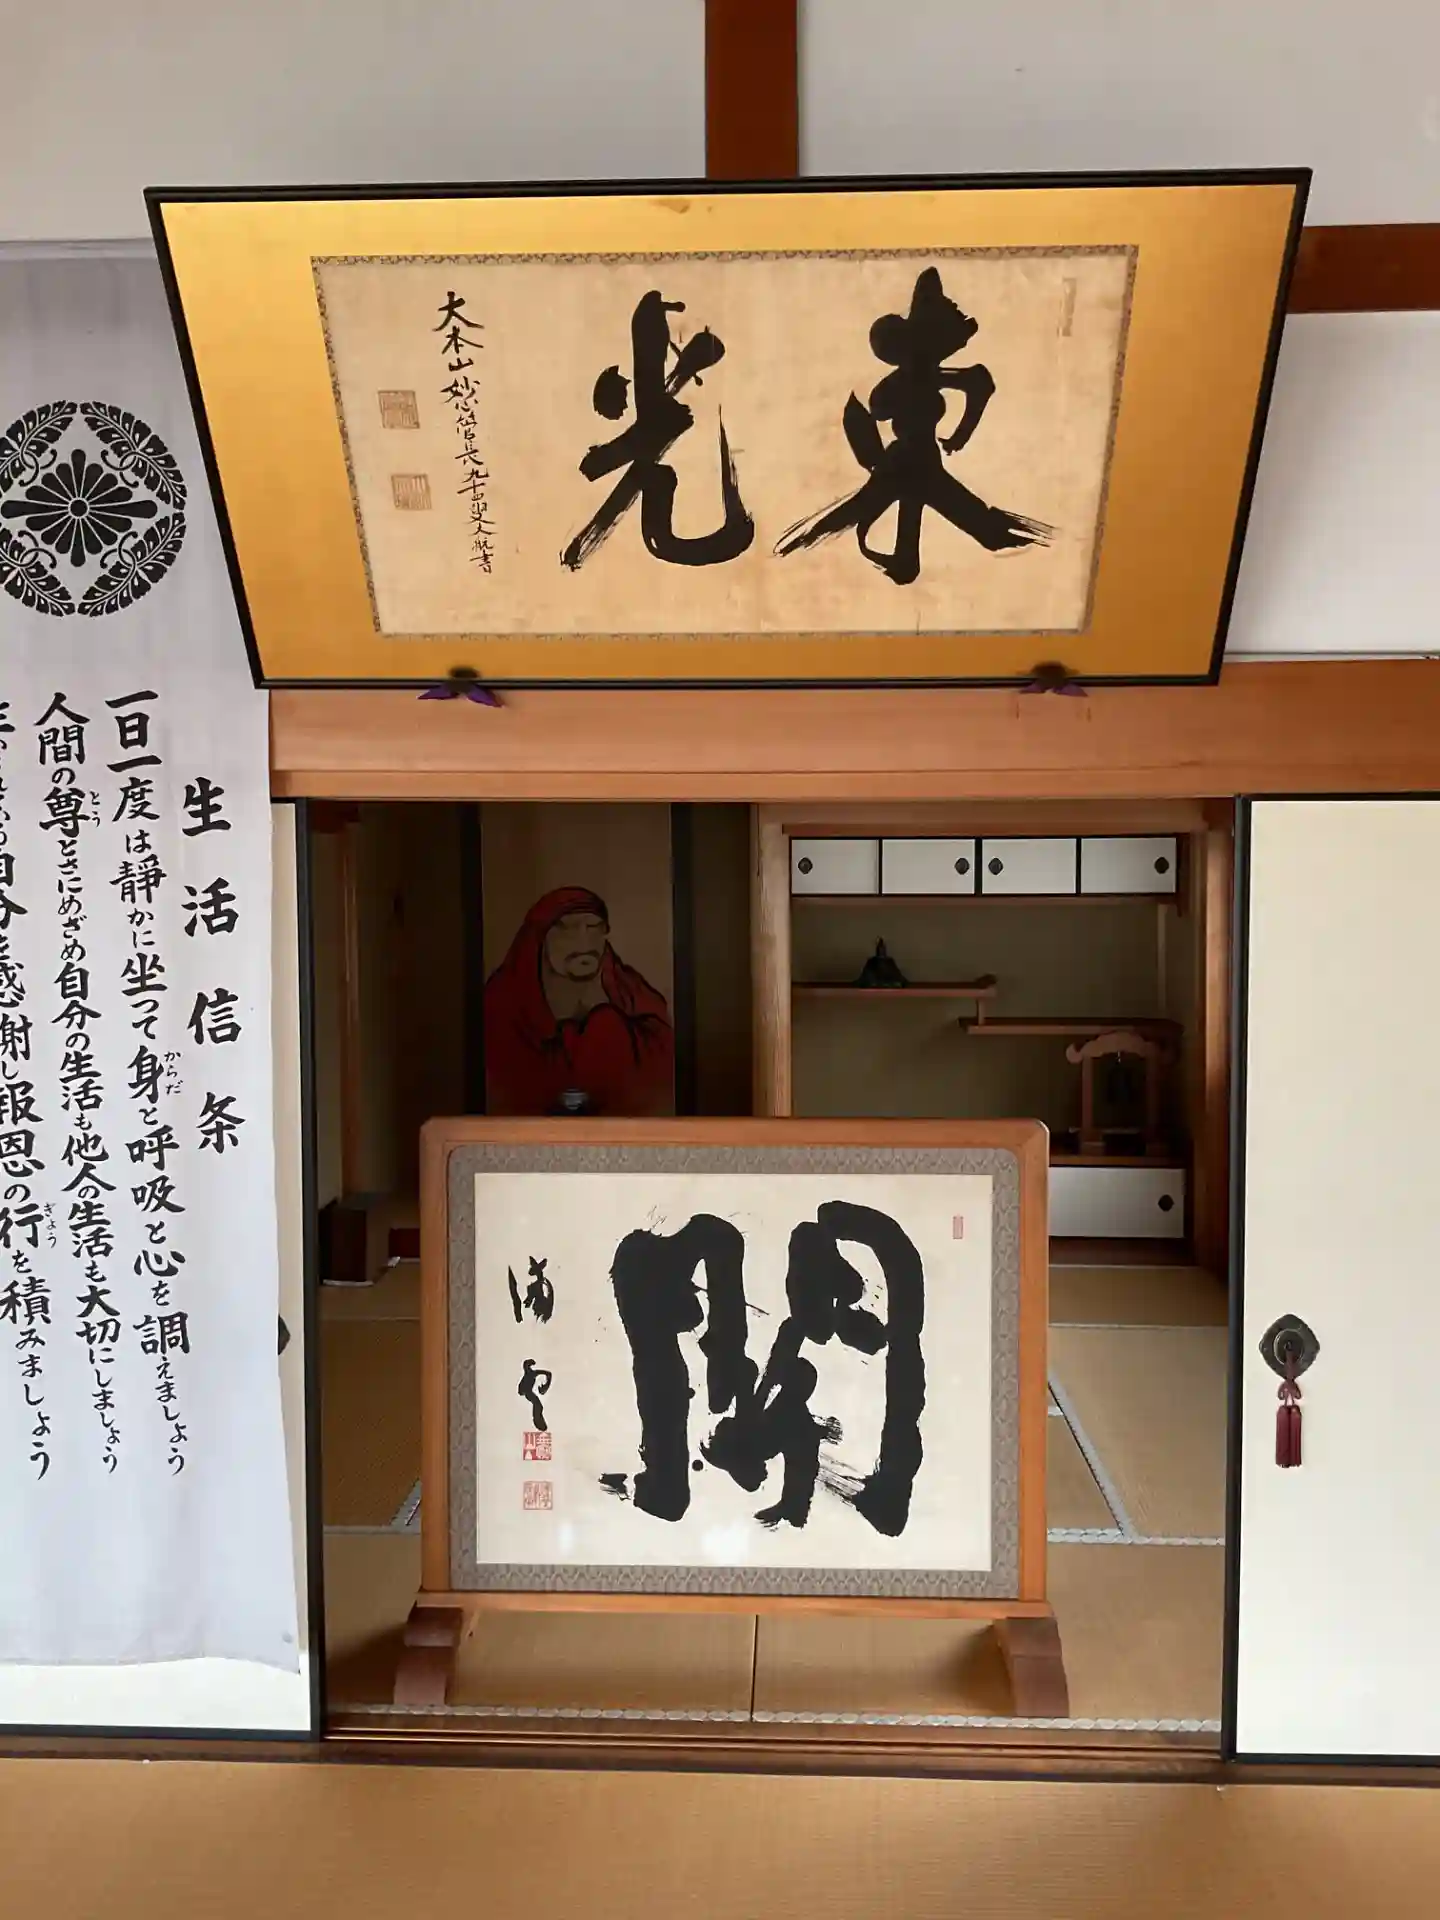 東光
大本山妙心管長九十四叟大航書
生活信条
一日一度は静かに坐って身と呼吸と心を調えましょう
からだ
人間の尊とさにめざめ自分の生活も他人の生活も大切にしましょう
とう
自分を感謝し報恩の行を積みましょう
ぎょう
関